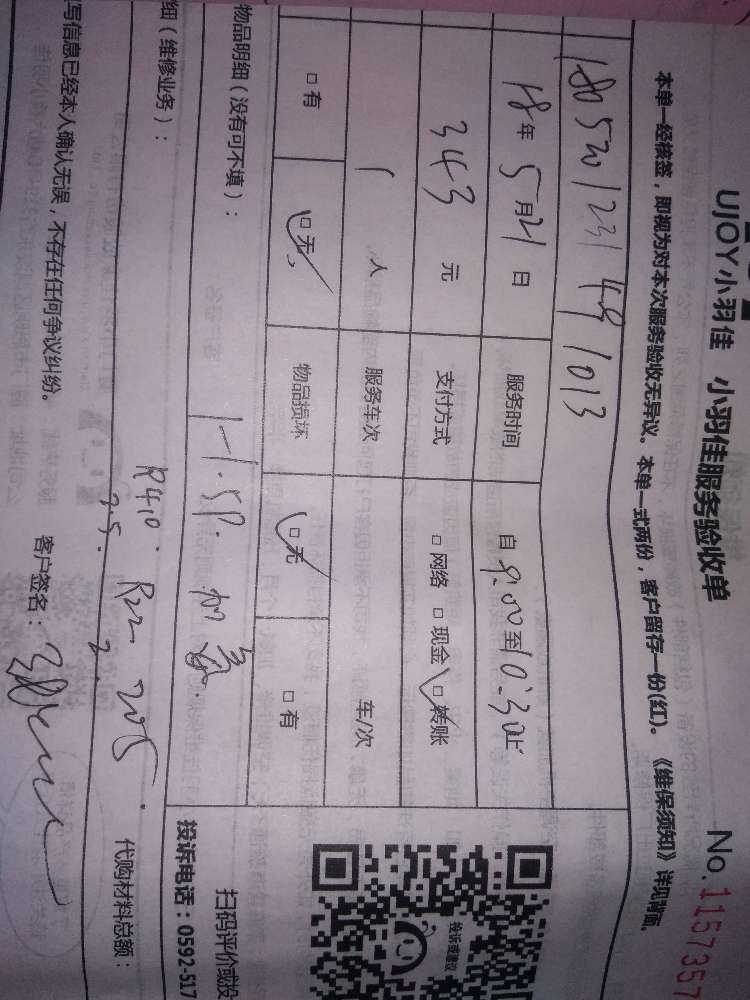 UJOY小羽佳 小羽佳服务验收单
No.1157357
本单一经核签，即视为对本次服务验收无异议。本单一式两份，客户留存一份(红)。《维保须知》详见背面。
18年5月21日 服务时间 自9:00至10:30止
343元 支付方式 □网络 □现金 □转账
1人 服务车次 车/次
□有 □无 物品损坏 □无 □有
物品明细（没有可不填）： 1-1.5P.加氟.
细（维修业务）： R410. R22 205.
代购材料总额：
写信息已经本人确认无误，不存在任何争议纠纷。 客户签名：
投诉或建议
扫码评价或投
投诉电话：0592-517